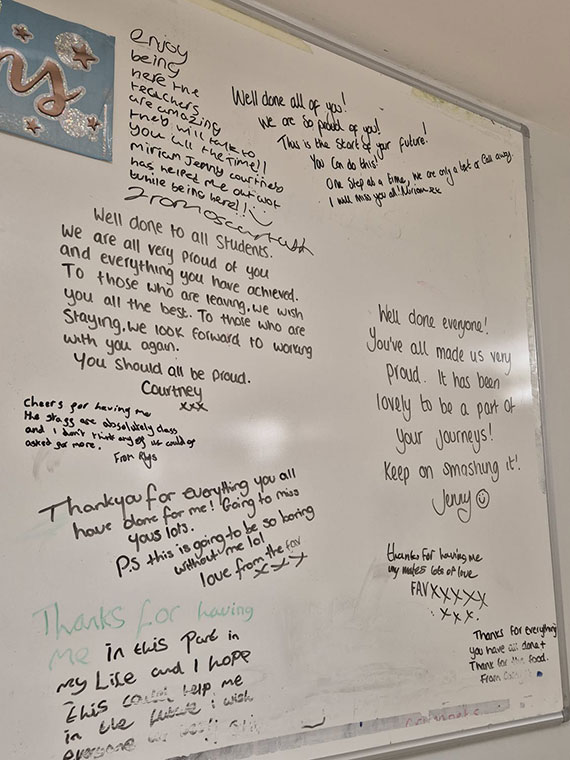 enjoy
being
here the
teachers
are amazing
they will talk to
you all the time!!
miriam Jenny courtney
has helped me out
while being here!!
Well done all of you!
We are so proud of you!
This is the start of your future!
You can do this!
One step at a time, we are only a text or call away.
I will miss you all! Miriam xx
Well done to all students.
We are all very proud of you
and everything you have achieved.
To those who are leaving, we wish
you all the best. To those who are
staying, we look forward to working
with you again.
You should all be proud.
Courtney
xxx
Well done everyone!
You've all made us very
proud. It has been
lovely to be a part of
your journeys!
Keep on smashing it!
Jenny
Cheers for having me
the staff are absolutely class
and I don't think any of us could of
asked for more.
From Rhys
Thankyou for everything you all
have done for me! Going to miss
yous lots.
P.S this is going to be so boring
without me lol
love from the fav
xxx
thanks for having me
my mates lots of love
FAV XXXXX
xxx.
Thanks for everything
you have all done +
Thank for the food.
From
Thanks for having
me in this Part in
my Life and I hope
this could help me
in the future i wish
everyone